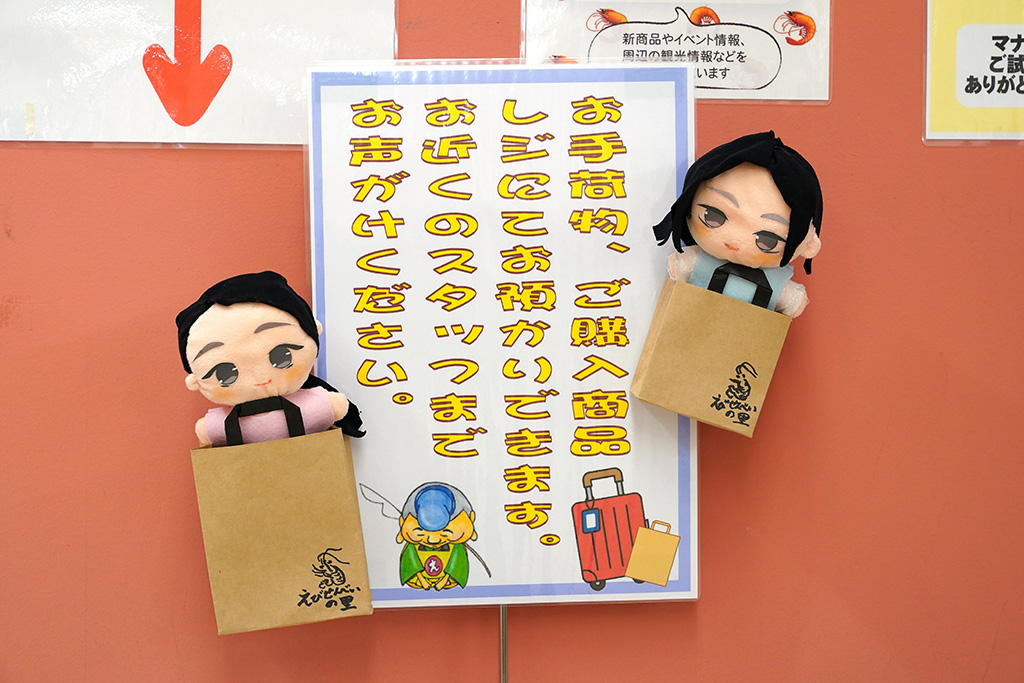 新商品やイベント情報、
周辺の観光情報などを
います
マナ
ご試
ありがと
お手荷物、ご購入商品
レジにてお預かいできます。
お近くのスタッフまで
お声がけください。
え
えびせんべい
の里
えびせんべい
の里